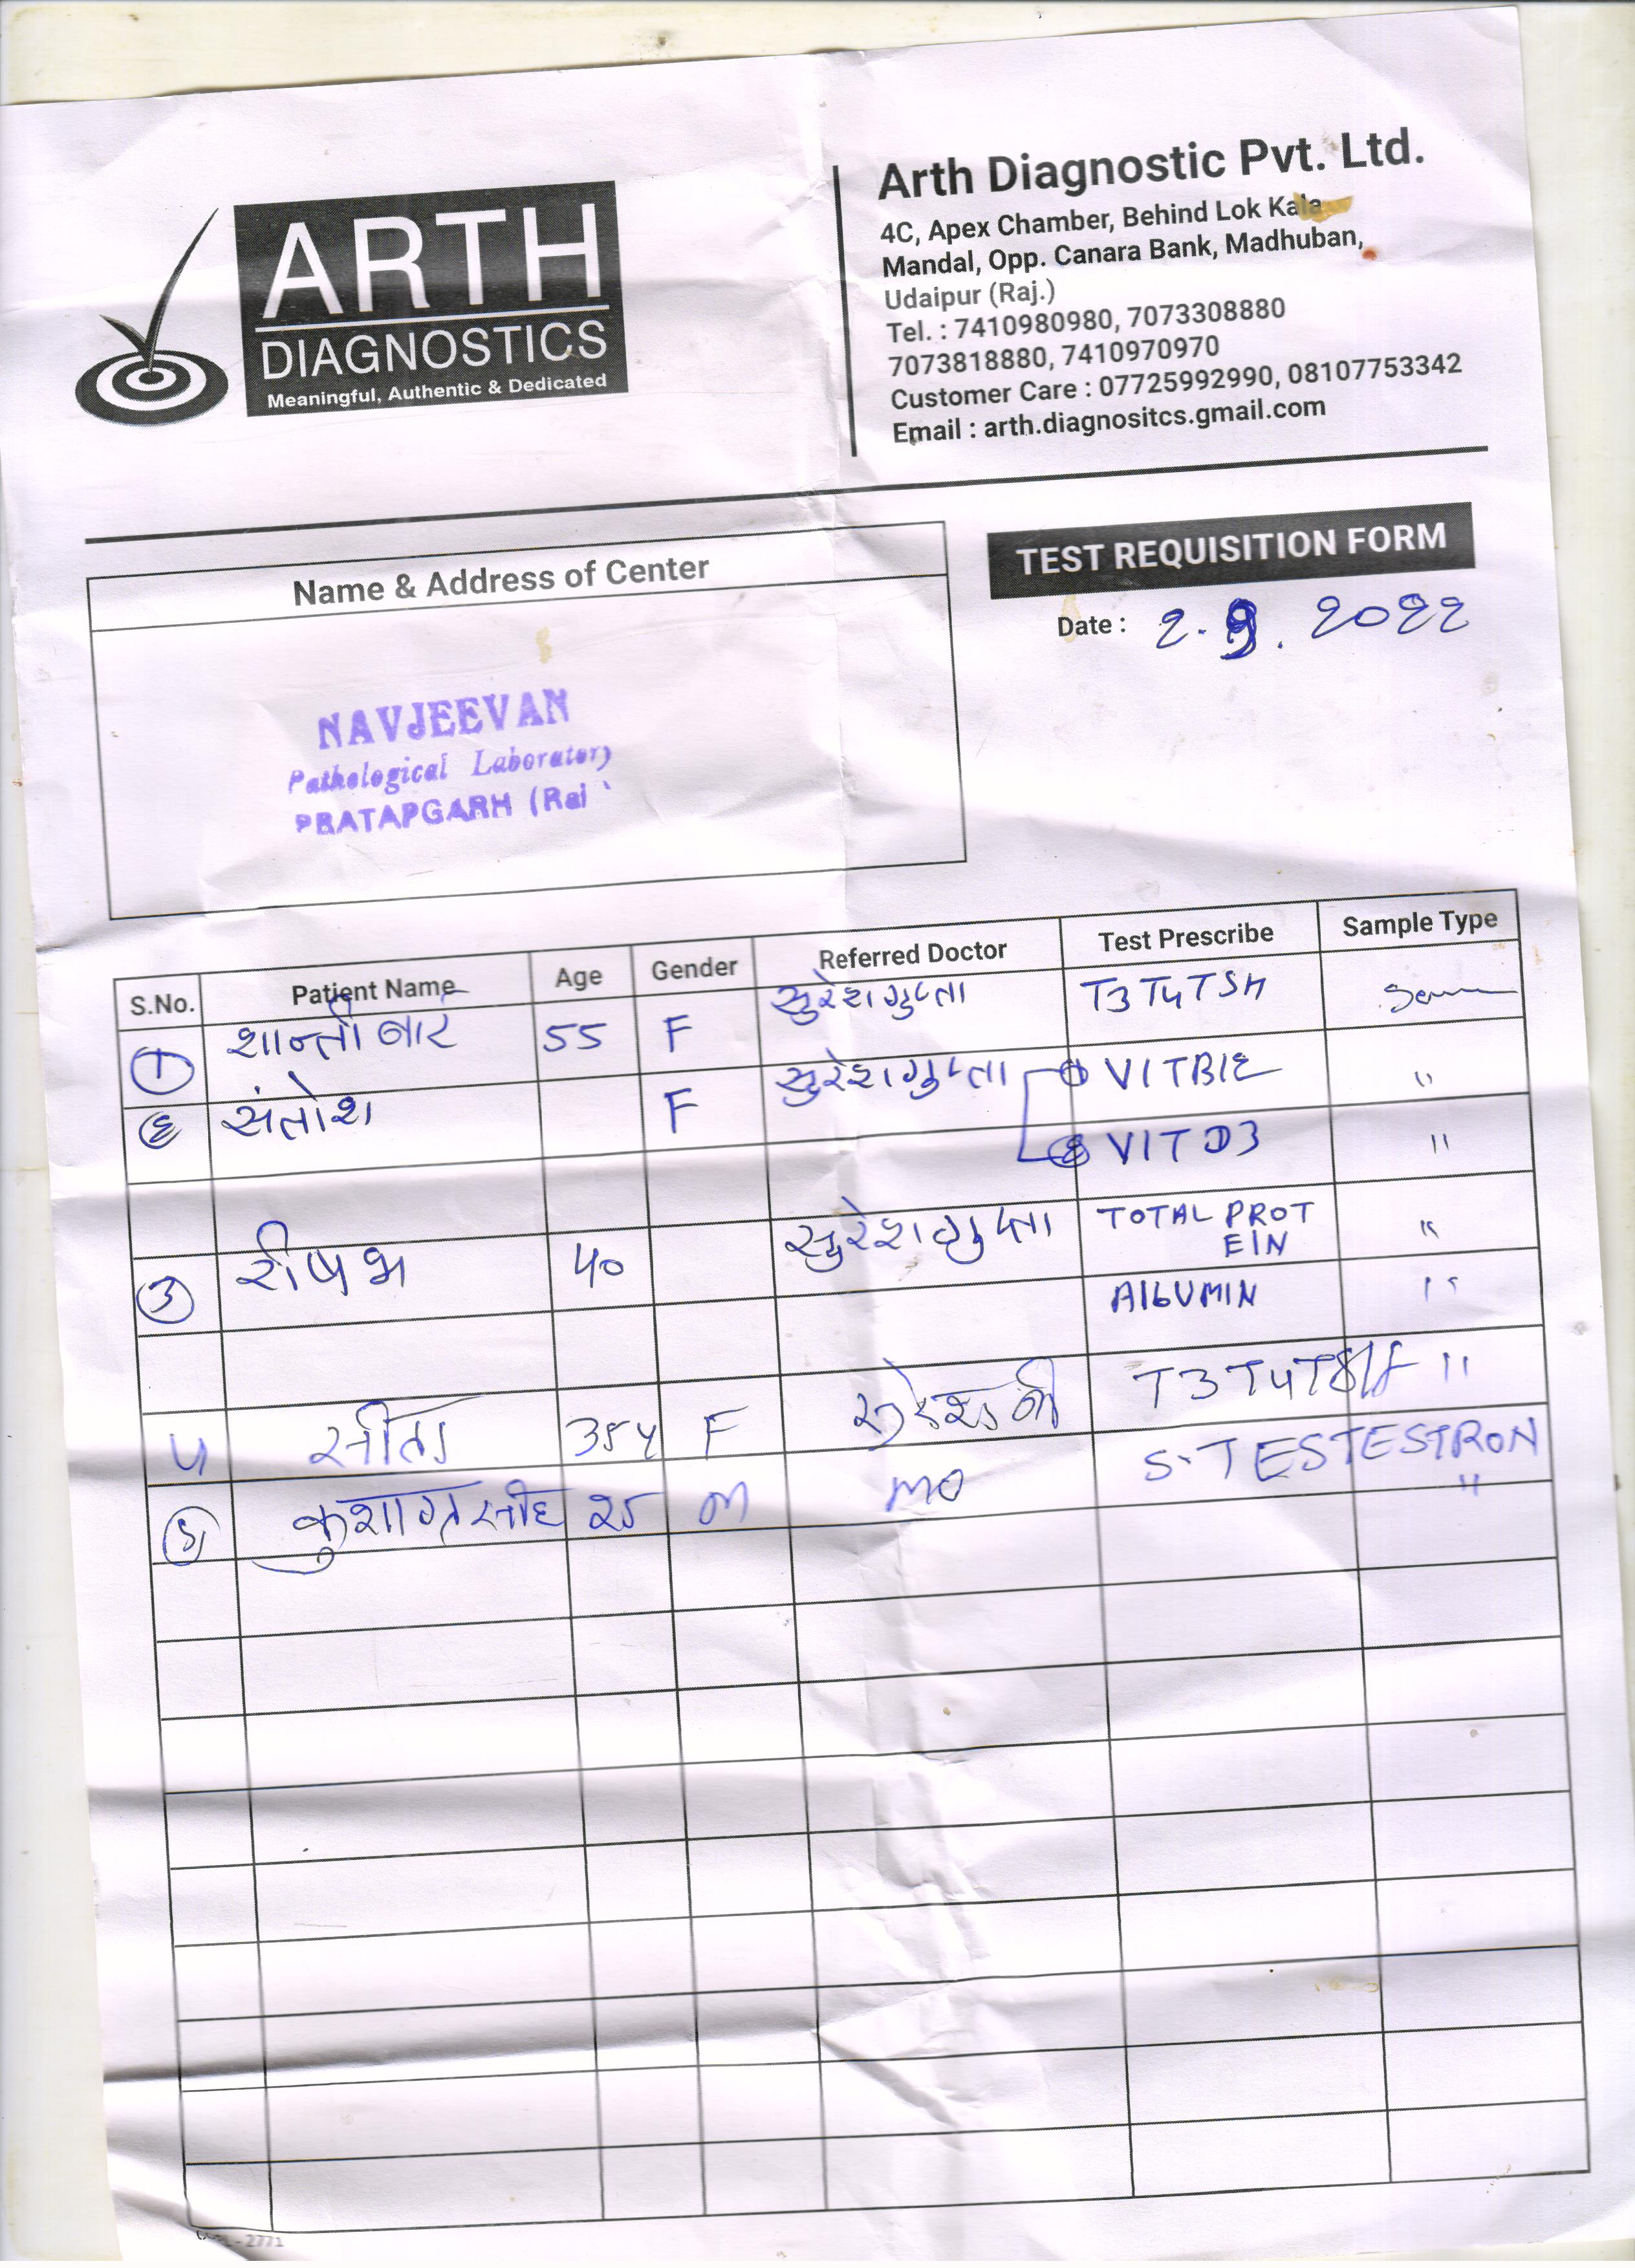 ARTH
DIAGNOSTICS
Meaningful, Authentic & Dedicated
Arth Diagnostic Pvt. Ltd.
4C, Apex Chamber, Behind Lok Kala
Mandal, Opp. Canara Bank, Madhuban,
Udaipur (Raj.)
Tel. : 7410980980, 7073308880
7073818880, 7410970970
Customer Care : 07725992990, 08107753342
Email : arth.diagnositcs.gmail.com
TEST REQUISITION FORM
Date : 2.9.2022
Name & Address of Center
NAVJEEVAN
Pathological Laboratory
PRATAPGARH (Raj
S.No. Patient Name Age Gender Referred Doctor Test Prescribe Sample Type
1 शान्ती बाई 55 F सुरेश गुप्ता T3 T4 TSH
2 संतोश F सुरेश गुप्ता 1 VIT B12 "
2 VIT D3 "
3 रीषभ 40 सुरेश गुप्ता TOTAL PROT "
EIN
AlbUMIN "
4 सीता 35 y F सुरेश जी T3 T4 TSH "
5 कुशाग्र सींह 25 m S-TESTESTRON
"
2771